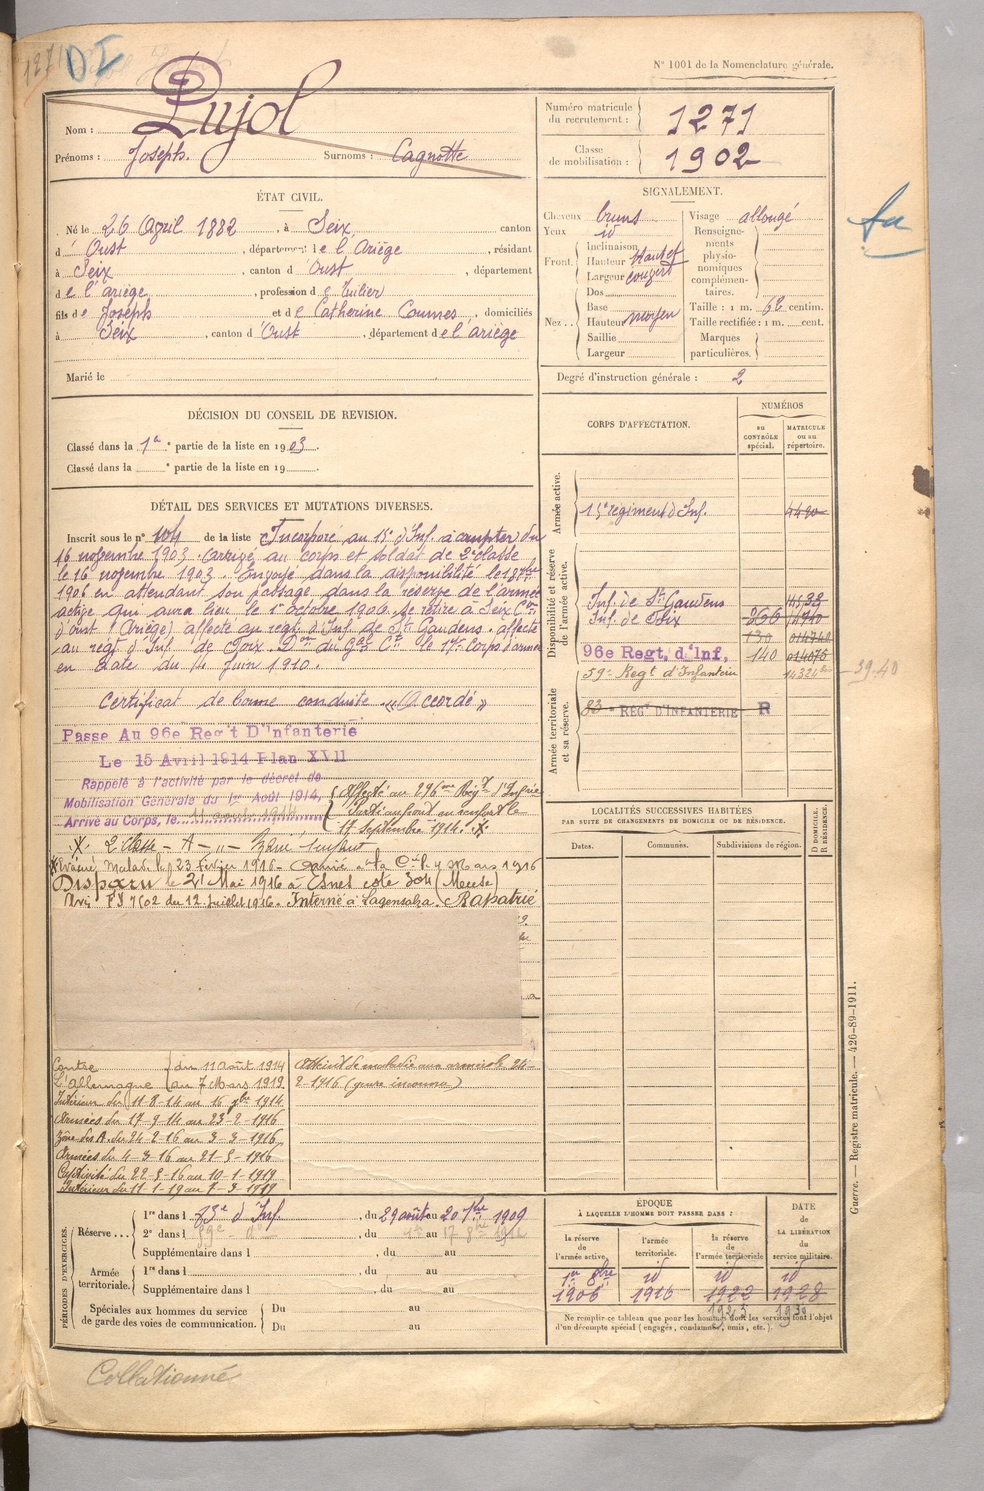 1271 D I
N° 1001 de la Nomenclature générale.
Nom : Pujol
Prénoms : Joseph. Surnoms : Cagnotte
Numéro matricule du recrutement : 1271
Classe de mobilisation : 1902
ÉTAT CIVIL.
Né le 26 Avril 1882, à Seix, canton
d' Oust, département de l'Ariège, résidant
à Seix, canton d'Oust, département
de l'ariège, profession de
fils de Joseph et de Catherine Coumes, domiciliés
à Seix, canton d'Oust, département de l'ariège
Marié le
SIGNALEMENT.
Cheveux bruns
Yeux id
Front. Inclinaison
Hauteur Haut et
Largeur couvert
Nez.. Dos
Base
Hauteur moyen
Saillie
Largeur
Visage allongé
Renseignements physionomiques complémentaires.
Taille : 1 m. 62 centim.
Taille rectifiée : 1 m. cent.
Marques particulières.
Degré d'instruction générale : 2
DÉCISION DU CONSEIL DE REVISION.
Classé dans la 1a e partie de la liste en 1903.
Classé dans la e partie de la liste en 19
DÉTAIL DES SERVICES ET MUTATIONS DIVERSES.
Inscrit sous le n° de la liste Incorporé au 15e d'Inf. à compter du
16 novembre 1903. Arrivé au corps et soldat de 2e classe
le 16 novembre 1903. Envoyé dans la disponibilité le 18
1906 en attendant son passage dans la réserve de l'armée
active qui aura lieu le 1er octobre 1906. Se retire à Seix Con
d'Oust (Ariège) affecté au régt d'Inf. de St Gaudens. affecté
au régt d'Inf. de Foix. Don du Gal Ct le 17e Corps d'armée
en date du 4 Juin 1910.
Certificat de bonne conduite "Accordé"
Passe Au 96e Reg't D'Infanterie
Le 15 Avril 1914 Plan XVII
Rappelé à l'activité par le décret de
Mobilisation Générale du 1er Août 1914,
Arrivé au Corps, le 11 août 1914
Affecté au 296me Régt d'Infrie
Parti au front en renfort le
17 Septembre 1914.
2e Classe - A - " -
Évacué Malad. 23 février 1916 - Mars 1916
Disparu le 21 Mai 1916 à Esnes cote 304 (Meuse)
Avis FY 7502 du 12 Juillet 1916. Interné à Lagensalza. Rapatrié
Contre L'Allemagne du 11 août 1914 au 7 Mars 1919.
Intérieur du 11-8-14 au 16 7bre 1914
Armées du 17-9-14 au 23-2-1916
Zône des A. du 24-2-16 au 3-3-1916
Armées du 4-3-16 au 21-5-1916
Captivité du 22-5-16 au 10-1-1919
Intérieur du 11-1-19 au 7-3-1919
Atteint de maladie aux armées le 24-
2-1916 (genre inconnu)
CORPS D'AFFECTATION.
NUMÉROS
au CONTRÔLE spécial.
MATRICULE ou au répertoire.
Armée active.
15e régiment d'Inf. 4490
Disponibilité et réserve de l'armée active.
Inf. de St Gaudens
Inf. de Foix 266 14740
130 014740
96e Regt, d'Inf, 140 014076
59e Regt d'Infanterie
39.40
Armée territoriale et sa réserve.
83e RÉGt D'INFANTERIE R
LOCALITÉS SUCCESSIVES HABITÉES
PAR SUITE DE CHANGEMENTS DE DOMICILE OU DE RÉSIDENCE.
Dates. Communes. Subdivisions de région. D DOMICILE. R RÉSIDENCE.
Guerre. — Registre matricule. — 426-89-1911.
PÉRIODES D'EXERCICES.
Réserve... 1re dans l 83e d'Inf. , du 29 août au 20 7bre 1909
2e dans l , du au 17 8bre
Supplémentaire dans l , du au
Armée territoriale. 1re dans l , du au
Supplémentaire dans l , du au
Spéciales aux hommes du service de garde des voies de communication. Du au
Du au
ÉPOQUE
À LAQUELLE L'HOMME DOIT PASSER DANS :
la réserve de l'armée active. l'armée territoriale. la réserve de l'armée territoriale
DATE de LA LIBÉRATION du service militaire.
1er 8bre id id id
1906 1916 1922 1928
Ne remplir ce tableau que pour les hommes dont les services font l'objet
d'un décompte spécial (engagés, condamnés, omis, etc.).
Collationné